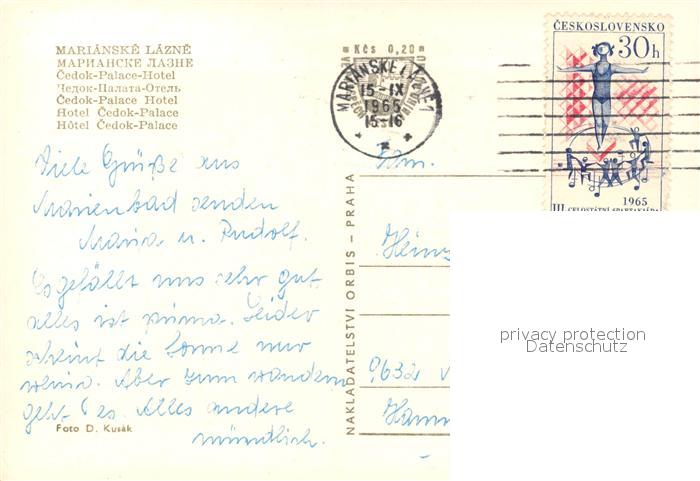 MARIÁNSKÉ LÁZNĚ
МАРИАНСКЕ ЛАЗНЕ
Čedok-Palace-Hotel
Чедок-Палата-Отель
Čedok-Palace Hotel
Hotel Čedok-Palace
Hôtel Čedok-Palace
Kčs 0,20
MARIÁNSKÉ LÁZNĚ 1
15-IX
1965
15-16
ČESKOSLOVENSKO
30h
1965
III. CELOSTÁTNÍ SPARTAKIÁDA
Viele Grüße aus
Marienbad senden
Maria u. Rudolf.
Es gefällt uns sehr gut
alles ist prima. Leider
scheint die Sonne nur
wenig. Aber zum wandern
geht es. Alles andere
mündlich.
Foto D. Kusák
NAKLADATELSTVÍ ORBIS – PRAHA
Fam.
9632
privacy protection
Datenschutz